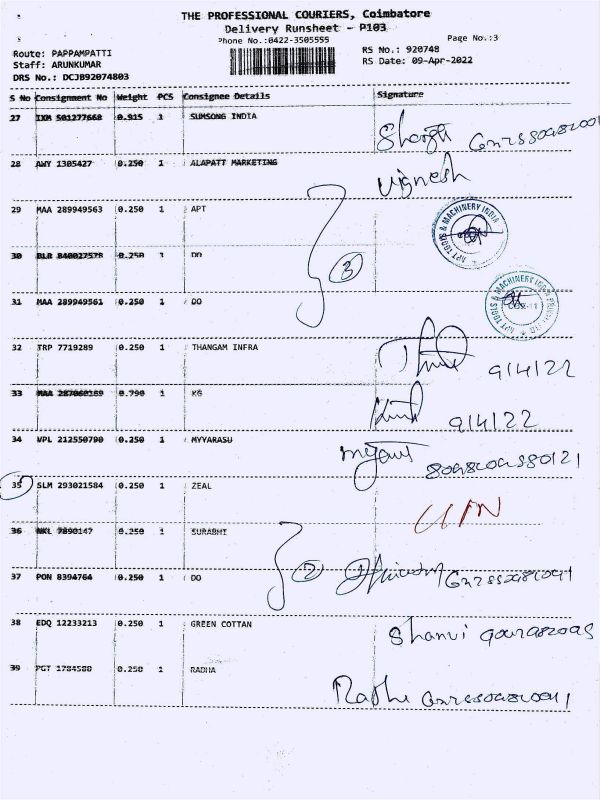 THE PROFESSIONAL COURIERS, Coimbatore
Delivery Runsheet - P103
Phone No.:0422-3505555
Page No.:3
Route: PAPPAMPATTI
RS No.: 920748
Staff: ARUNKUMAR
RS Date: 09-Apr-2022
DRS No.: DCJB92074803
S No Consignment No Weight PCS Consignee Details Signature
27 IXM 501277668 0.915 1 SUMSONG INDIA
28 AWY 1305427 0.250 1 ALAPATT MARKETING
Vignesh
29 MAA 289949563 0.250 1 APT
APT TOOLS & MACHINERY INDIA
30 BLR 840027578 0.250 1 DO
3
31 MAA 289949561 0.250 1 DO
APT TOOLS & MACHINERY INDIA
32 TRP 7719289 0.250 1 THANGAM INFRA
9/4/22
33 MAA 287060169 0.790 1 KG
9/4/22
34 VPL 212550790 0.250 1 MYYARASU
35 SLM 293021584 0.250 1 ZEAL
36 NKL 7890147 0.250 1 SURABHI
37 PON 8394764 0.250 1 DO
2
38 EDQ 12233213 0.250 1 GREEN COTTAN
Shanvi
39 PGT 1784580 0.250 1 RADHA